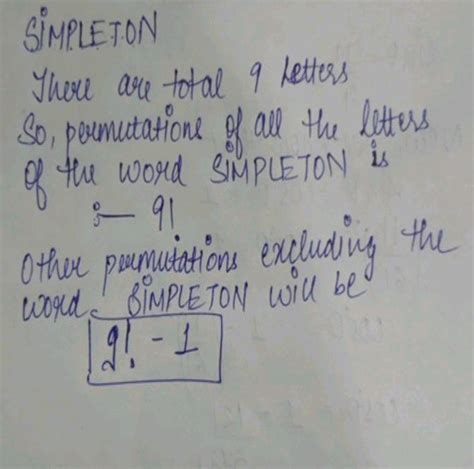 SIMPLETON
There are total 9 letters
So, permutations of all the letters
of the word SIMPLETON is
:— 9!
Other permutations excluding the
word SIMPLETON will be
9! - 1